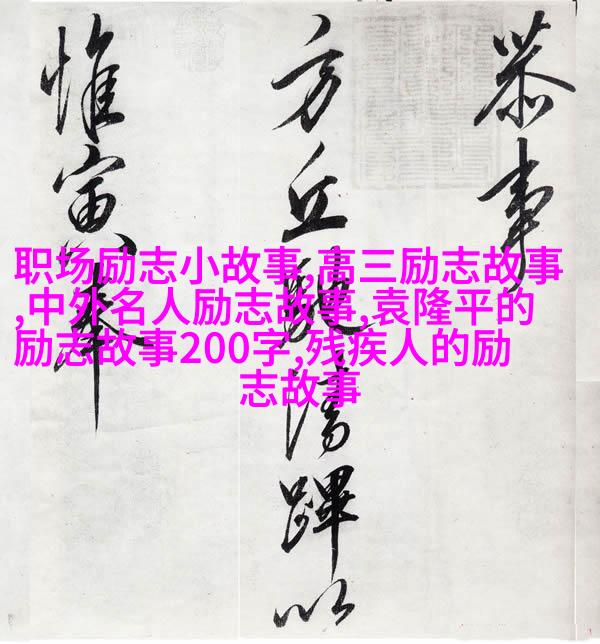 恭事
方丘清蹕以
惟寅奉
职场励志小故事,高三励志故事
,中外名人励志故事,袁隆平的
励志故事200字,残疾人的励
志故事